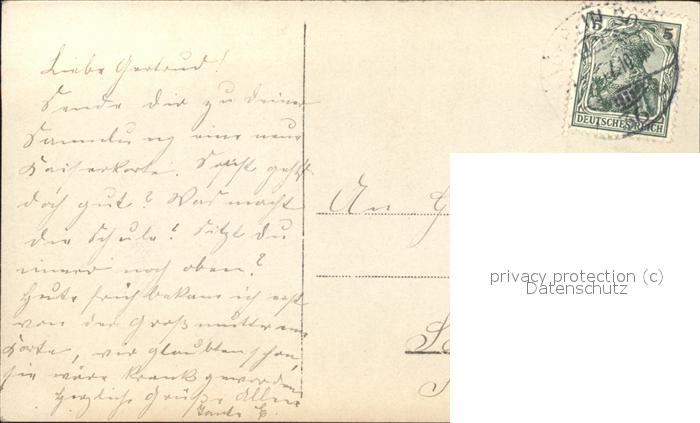 Liebe Gertrud!
Sende dir zu deiner
Sammlung eine neue
Kaiserkarte. Sonst geht's
doch gut? Was macht
die Schule? Sitzt du
immer noch oben?
Heute früh bekam ich erst
von der Großmutter eine
Karte, wir glaubten schon,
sie wäre krank geworden.
Herzliche Grüße Allen
Tante E.
5 5
DEUTSCHES REICH
An G
privacy protection (c)
Datenschutz